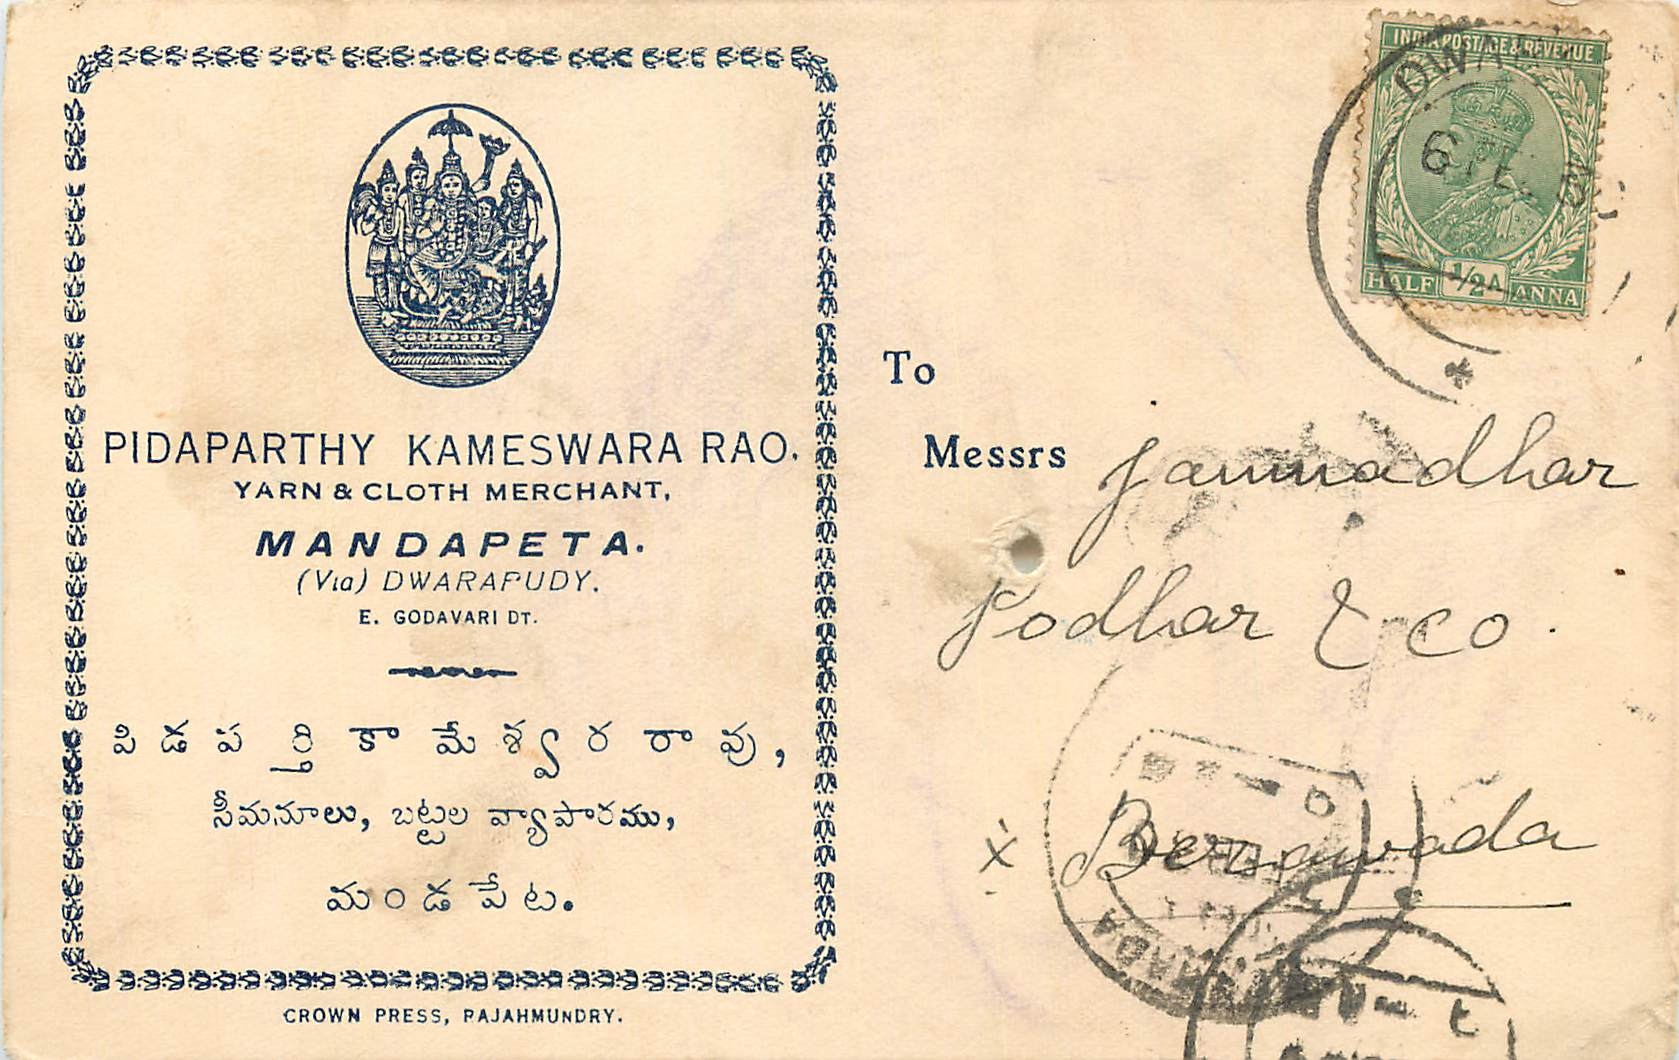 PIDAPARTHY KAMESWARA RAO.
YARN & CLOTH MERCHANT,
MANDAPETA.
(Via) DWARAPUDY.
E. GODAVARI DT.
పిడపర్తి కామేశ్వరరావు,
సీమనూలు, బట్టల వ్యాపారము,
మండపేట.
CROWN PRESS, RAJAHMUNDRY.
INDIA POSTAGE & REVENUE
HALF 1/2A ANNA
To
Messrs Jamnadhar
Podhar & co.
x Bezawada